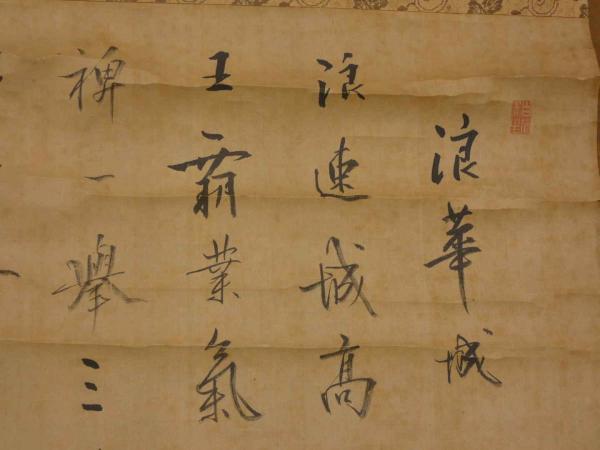 浪華城
浪速城高
王霸業氣
裨一擧三